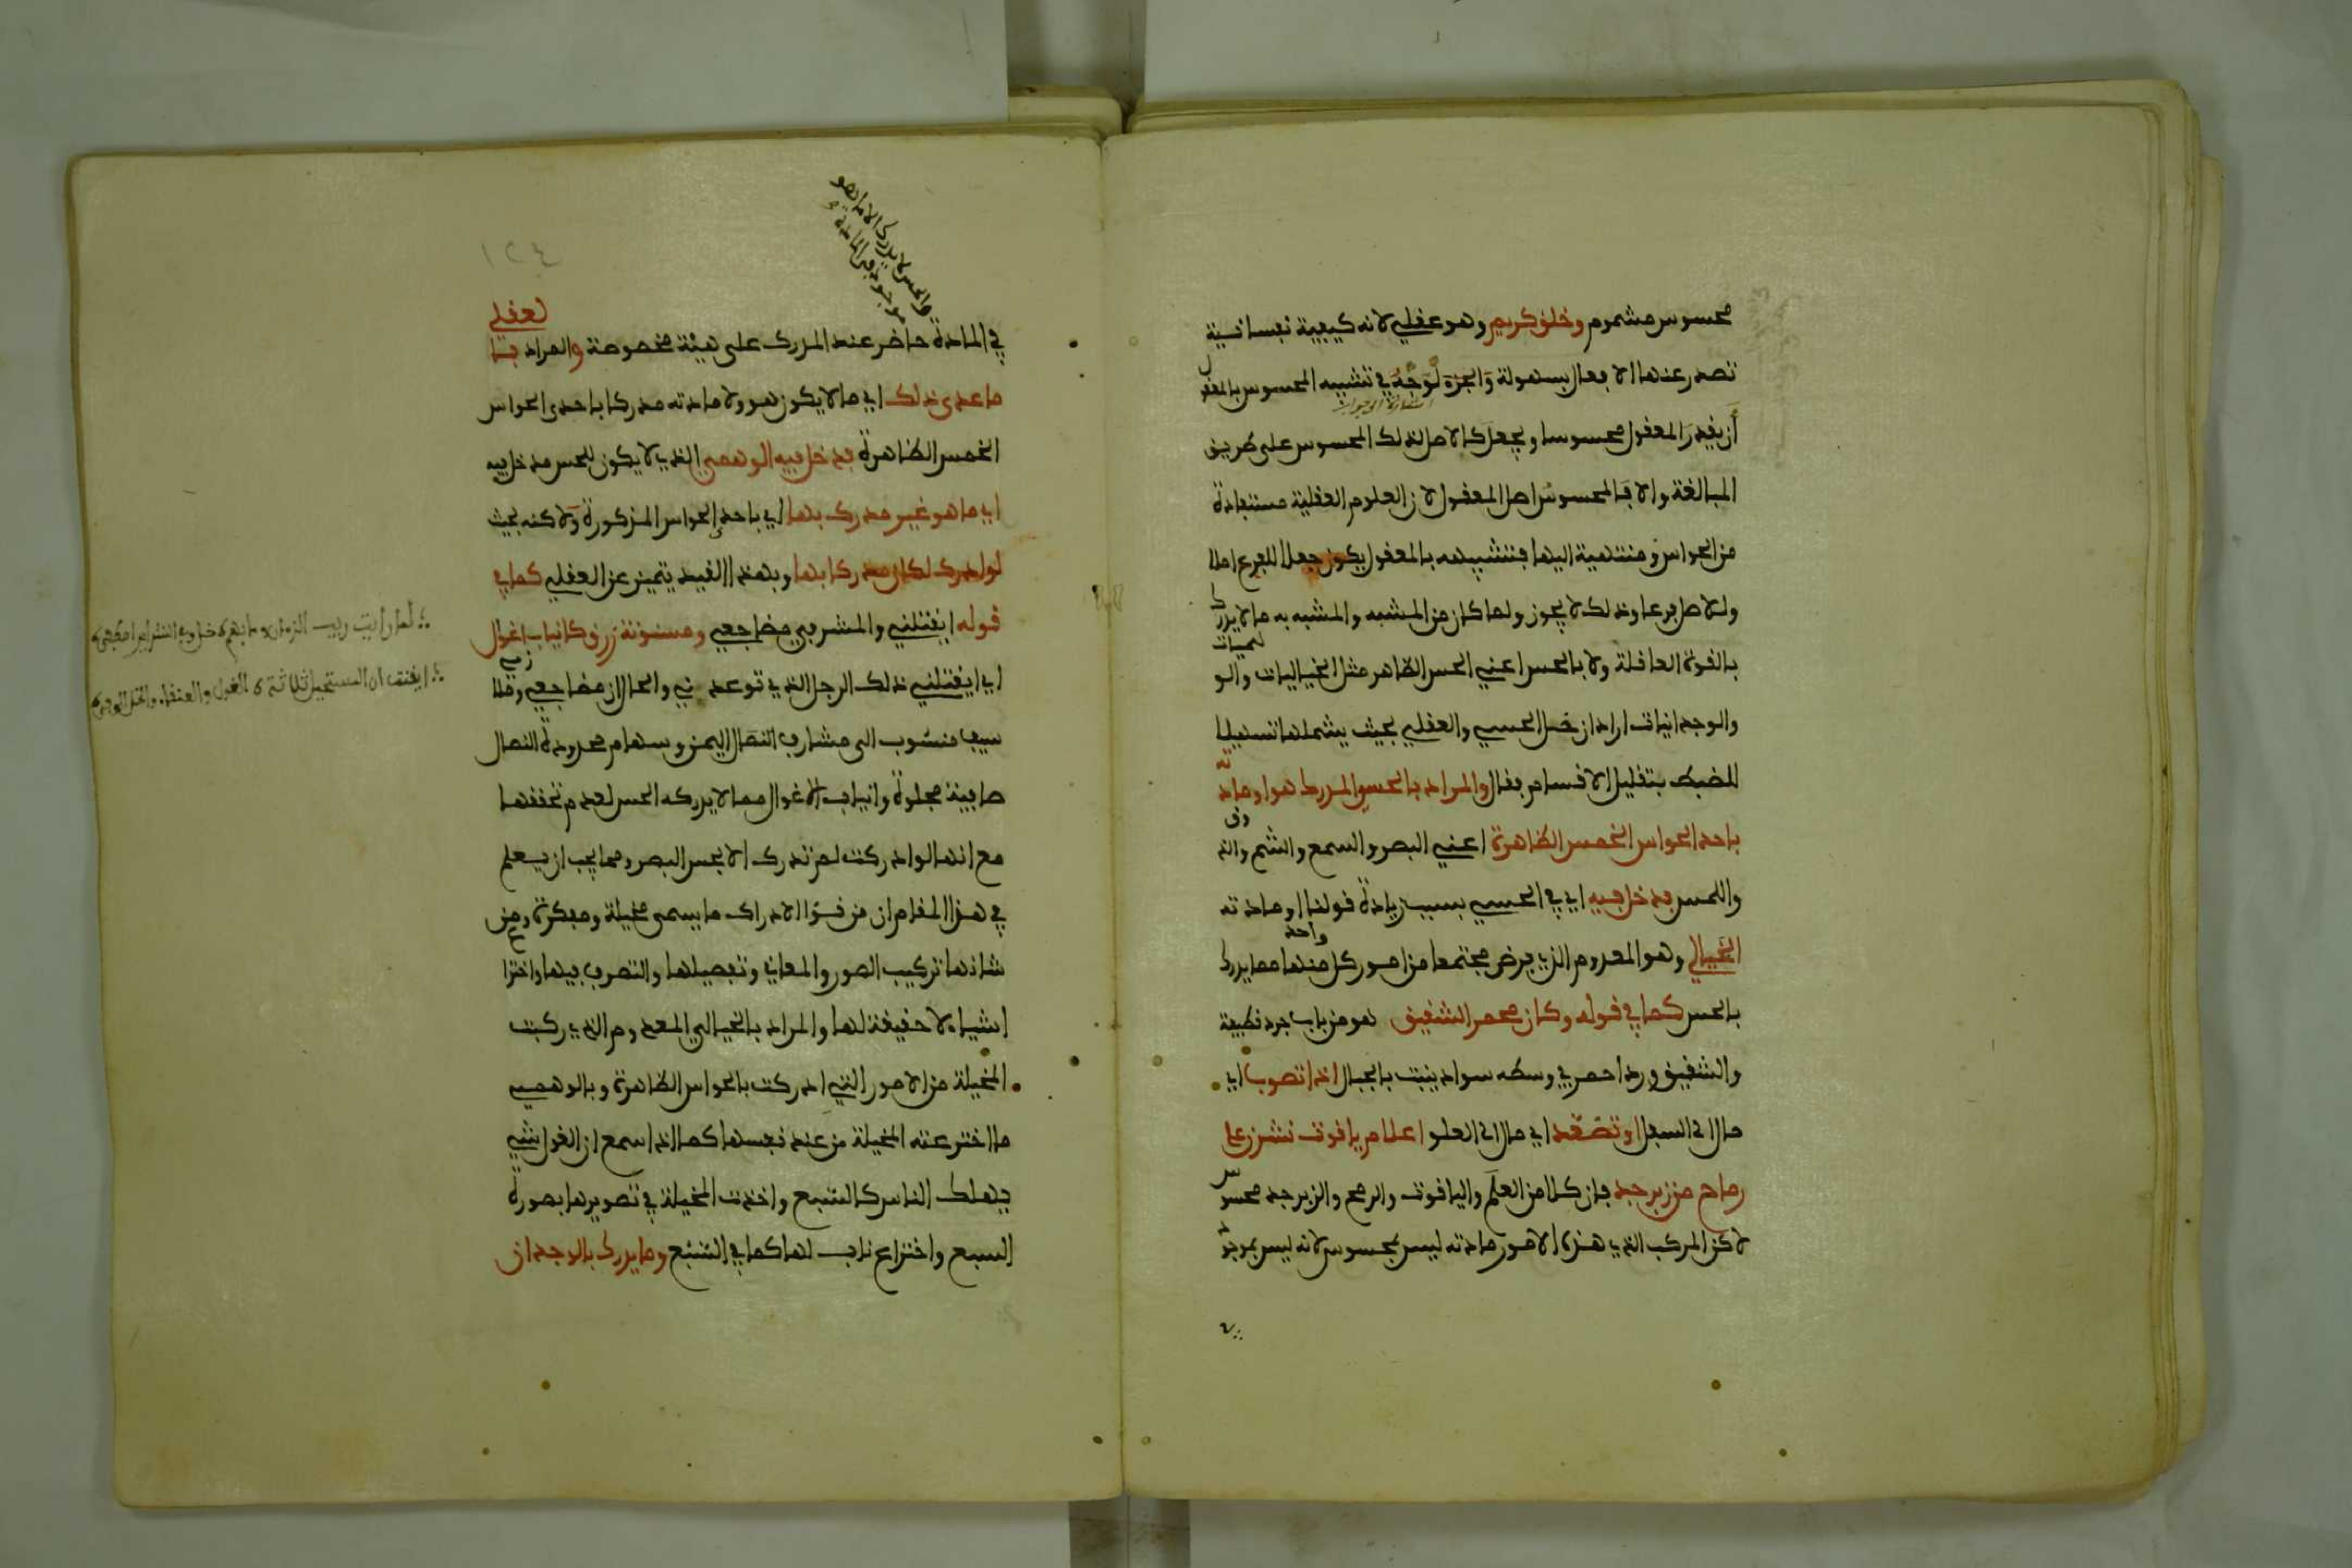 محسوس مشموم وخلق كريم وهو عقلي لانه كيفية نفسانية
تصدر عنها الافعال بسهولة والجزة لوجه في تشبيه المحسوس بالمعقول
أن يقدر المعقول محسوسا ويجعل كالاصل لذلك المحسوس على طريق
المبالغة والا فالمحسوس اصل المعقول لان العلوم العقلية مستفادة
من الحواس ومنتهية اليها فتشبيهه بالمعقول يكون جعلا للفرع اصلا
ولاصل فرعا وذلك لا يجوز ولما كان من المشبه والمشبه به ما لا يدرك
بالقوة العاقلة ولا بالحس اعني الحس الظاهر مثل الخياليات والوهميات
والوجدانيات اراد ان يجعل الحسي والعقلي بحيث يشملها تسهيلا
للضبط بتقليل الاقسام بقال والمراد بالحسي المدرك هو او مادته
باحد الحواس الخمس الظاهرة اعني البصر والسمع والشم والذوق
واللمس فدخل فيه اي في الحسي بسبب زيادة قولنا او مادته
الخيالي وهو المعدوم الذي فرض مجتمعا من امور كل واحد منها مما يدرك
بالحس كما في قوله وكان محمر الشقيق هو من باب جرد قطيفة
والشقيق ورد احمر في وسطه سواد ينبت بالجبال اذا تصوب اي
مال الى السفل او تصعد اي مال الى العلو اعلام ياقوت نشرن على
رماح من زبرجد فان كلا من العلم والياقوت والرمح والزبرجد محسوس
لاكن المركب الذي هذه الامور مادته ليس بمحسوس لانه ليس بموجود
والحس لا يدرك الا ما هو
موجود في المادة
١٢٤
في المادة حاضر عند المدرك على هيئة مخصوصة والمراد بالعقلي
ما عدى ذلك اي ما لا يكون هو ولا مادته مدركا باحدى الحواس
الخمس الظاهرة فدخل فيه الوهمي الذي لا يكون للحس مدخل فيه
اي ما هو غير مدرك بها اي باحد الحواس المذكورة ولاكنه بحيث
لو ادرك لكان مدركا بها وبهذا القيد يتميز عن العقلي كما في
قوله ايقتلني والمشرفي مضاجعي ومسنونة زرق كانياب اغوال
اي ايقتلني ذلك الرجل الذي توعدني والحال ان مضاجعي
سيف منسوب الى مشارف اليمن وسهام محدودة النصال
صافية مجلوة وانياب الاغوال مما لا يدركه الحس لعدم تحققها
مع انها لو ادركت لم تدرك الا بحس البصر ومما يجب ان يعلم
في هذا المقام ان من قوى الادراك ما يسمى مخيلة ومفكرة ومن
شانها تركيب الصور والمعاني وتفصيلها والتصرف فيها واختراع
اشياء لا حقيقة لها والمراد بالخيالي المعدوم الذي ركبت
المخيلة من الامور التي ادركت بالحواس الظاهرة وبالوهمي
ما اخترعته المخيلة من عند نفسها كما اذا سمع ان الغول شيء
يهلك الناس كالسبع واخذت المخيلة في تصويرها بصورة
السبع واختراع ناب لها كما في السبع وما يدرك بالوجدان
لما رأيت
ان المستحيل ثلاثة الغول والعنقاء والخل الوفي